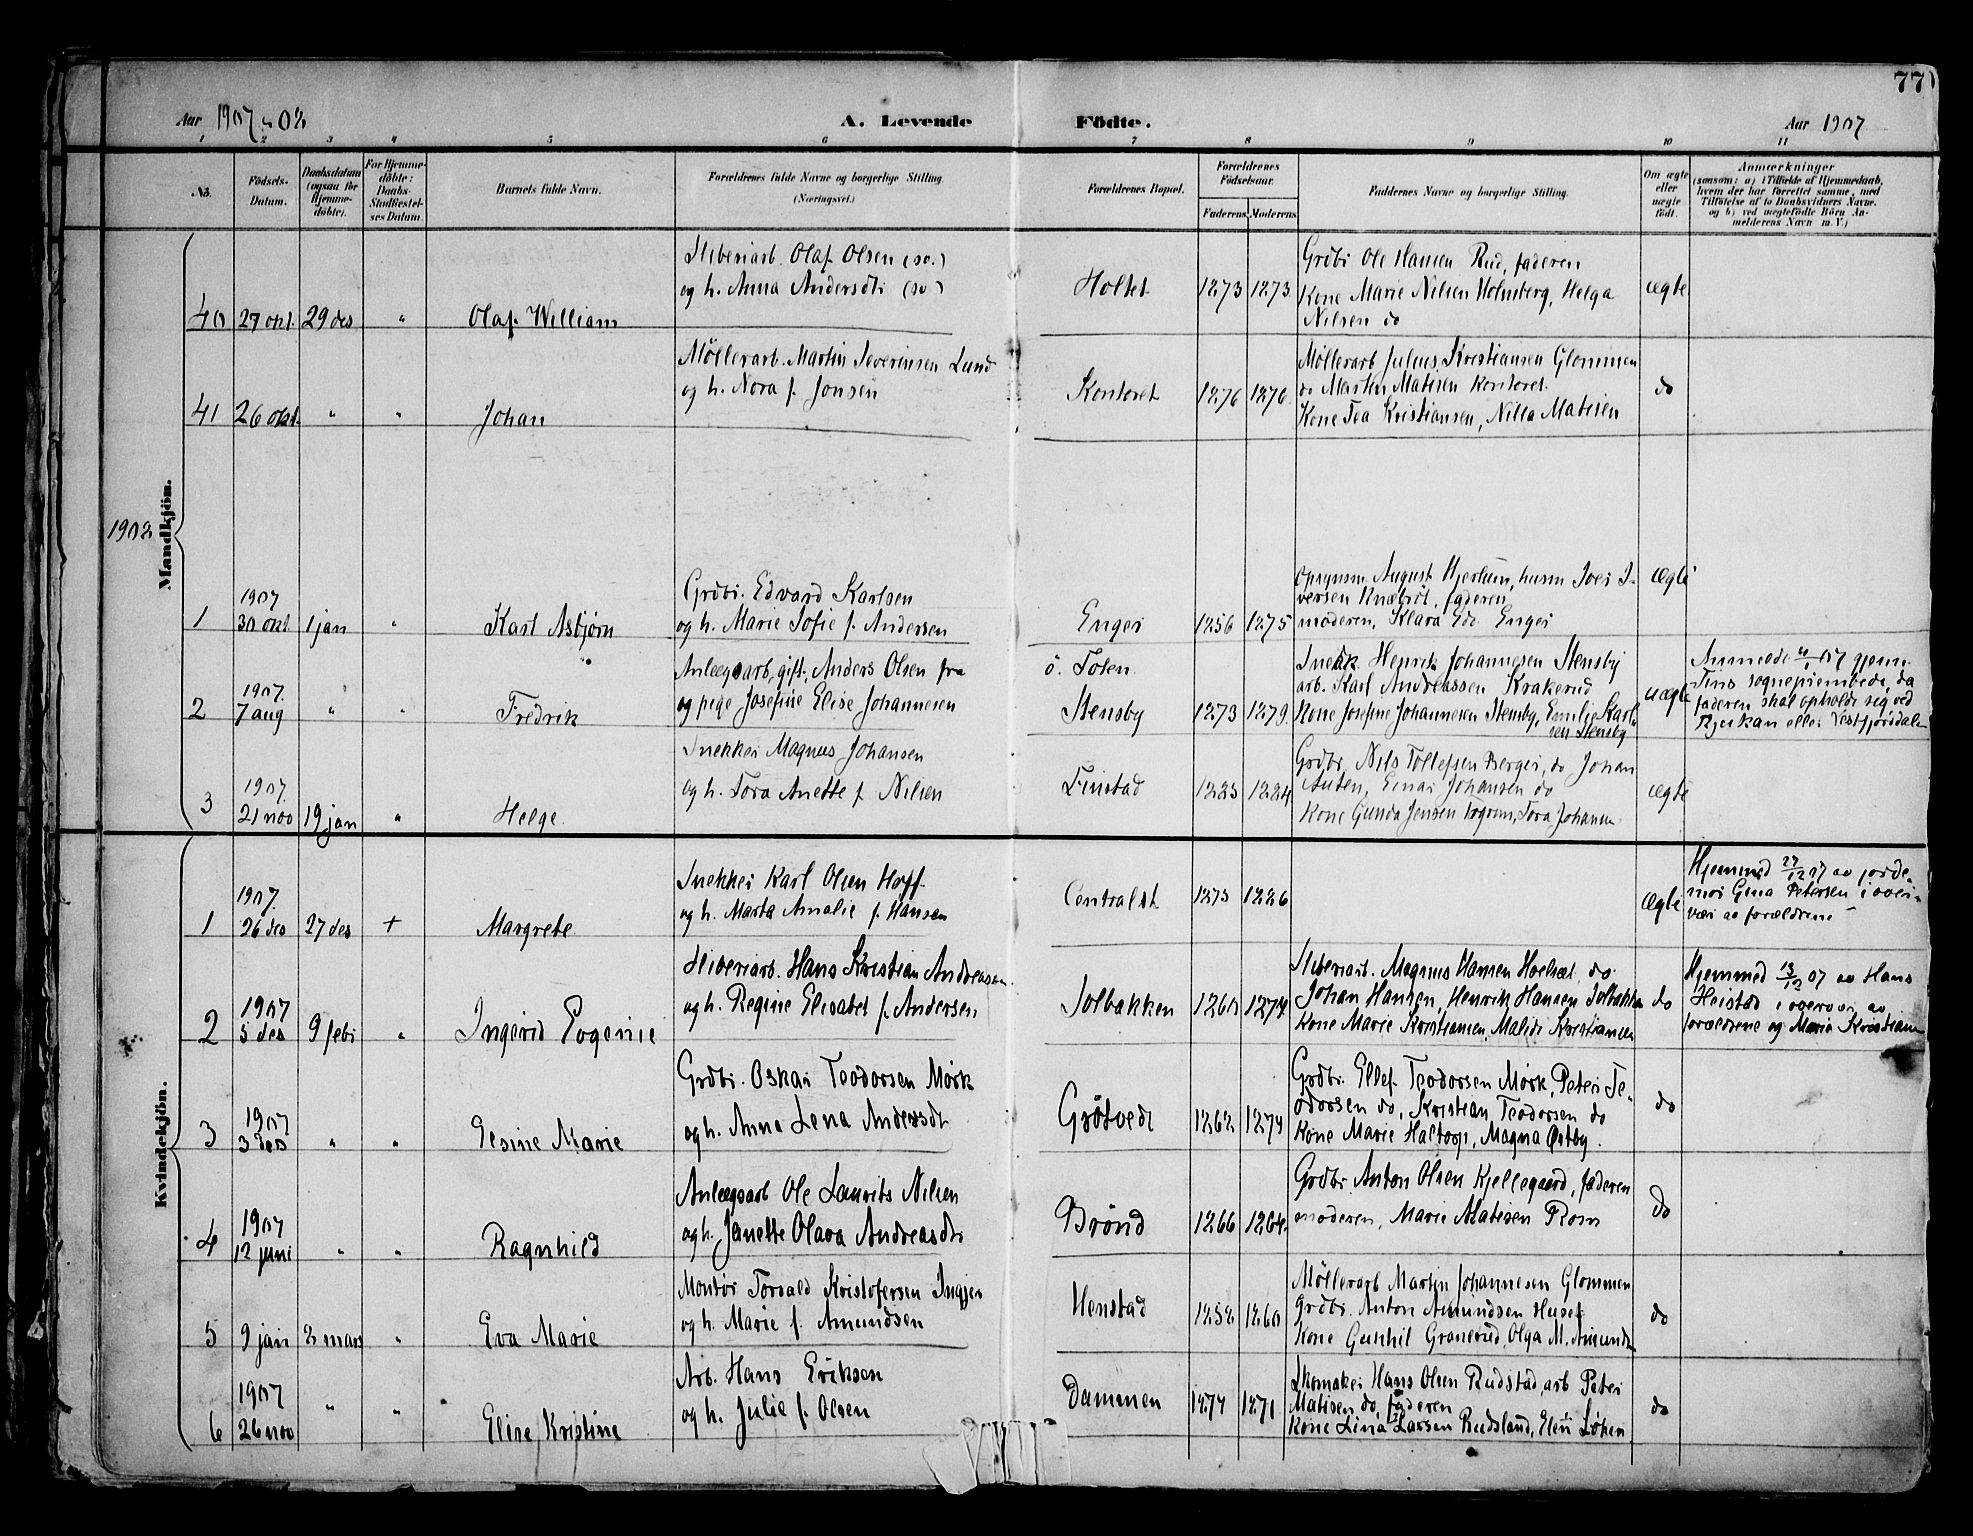 77
Aar 1907-08
A. Levende
Födte.
Aar 1907
1 2 3 4 5 6 7 8 9 10 11
No.
Födsels-
Datum.
Daabsdatum
(ogsaa for
Hjemme-
döbte).
For Hjemme-
döbte:
Daabs-
Stadfæstel-
ses Datum
Barnets fulde Navn.
Forældrenes fulde Navne og borgerlige Stilling.
(Næringsvei.)
Forældrenes Bopæl.
Forældrenes
Födselsaar.
Faderens Moderens
Faddernes Navne og borgerlige Stilling.
Om ægte
eller
uægte
födt.
Anmærkninger
(saasom: a) i Tilfælde af Hjemmedaab,
hvem der har forrettet samme, med
Tilföielse af to Daabsvidners Navne.
og b) ved uægtefödte Börn An-
melderens Navn m. V.)
Mandkjön.
40 27 okt. 29 des " Olaf William
Sliberiarb. Olaf Olsen (so.)
og h. Anna Andersdt. (so)
Holtet 1873 1873
Grdbr. Ole Hansen Rud, faderen
Kone Marie Nilsen Holmberg, Helga
Nilsen do
ægte
41 26 okt. " " Johan
Møllerarb. Martin Severinsen Lund
og h. Nora f. Jonsen
Kontoret 1876 1876
Møllerarb Julius Kristiansen Glommen
do Martin Matisen Kontoret
Kone Tea Kristiansen, Nilla Matisen
do
1908
1 1907 30 okt 1 jan " Karl Asbjørn
Grdbr. Edvard Karlsen
og h. Marie Sofie f. Andersen
Enger 1856 1875
Opsynsm. August Hjertum, husm Iver I-
versen Knætrit, faderen,
moderen, Klara Edv Enger
ægte
2 1907. 7 aug " " Fredrik
Anlægsarb, gift, Anders Olsen fra
og pige Josefine Elise Johannesen
ö. Toten
Stensby 1873 1879
Snedk Henrik Johannesen Stensby
arb. Karl Andreassen Krakerud
Kone Josefine Johannesen Stensby, Emilie Karl-
sen Stensby
uægte
Anmeldt 07 gjenn.
Tins sogneprembede, da
faderen skal opholde sig ved
Rjukan eller Vestfjorddalen
3 1907. 21 nov 19 jan " Helge
Snekker Magnus Johansen
og h. Tora Anette f. Nilsen
Finstad 1883 1884
Grdbr. Nils Tollefsen Berger, do Johan
Auten, Einar Johansen do
Kone Gunda Jensen Togrun, Tora Johansen
ægte
Kvindekjön.
1 1907. 26 des 27 des + Margrete
Snekker Karl Olsen Hoff
og h. Marta Amalie f. Hansen
Centralst 1873 1886
ægte
Hjemmed 27/12 07 av jorde-
mor Gina Petersen i over-
vær av forældrene
2 1907 5 des 9 febr " Ingerid Evgenie
Sliberiarb. Hans Kristian Andreasen
og h. Regine Elisabet f. Andersen
Solbakken 1860 1874
Sliberiarb. Magnus Hansen Hoelsæt do
Johan Hansen, Henrik Hansen Solbakken
Kone Marie Kristiansen, Malide Kristiansen
do
Hjemmed 13/12 07 av Hans
Heistad i overvær av
forældrene og Marie Kristiansen
3 1907 3 des " " Elsine Marie
Grdbr. Oskar Teodorsen Mørk
og h. Anna Lena Andersdt
Grötvedt 1862 1874
Grdbr. Ellef Teodorsen Mørk, Peter Te-
odorsen do, Kristian Teodorsen do
Kone Marie Haltorp, Magna Østby.
do
4 1907 12 juni " " Ragnhild
Anlægsarb Ole Laurits Nilsen
og h. Janette Olava Andreasdt
Brönd 1866 1864
Grdbr. Anton Olsen Kjellegaard, faderen
moderen, Marie Matisen Rom
do
5 9 jan 8 mars " Eva Marie
Montør Torvald Kristofersen Ingjer
og h. Marie f. Amundsen
Henstad 1858 1860
Møllerarb Martin Johannesen Glommen
Grdbr. Anton Amundsen Huset
Kone Gunhil Granerud, Olga M. Amunds
do
6 1907 26 nov " " Elise Kristine
Arb. Hans Eriksen
og h. Julie f. Olsen
Dammen 1874 1871
Skomaker Hans Olsen Rudstad, arb Peter
Matisen do, faderen
Kone Lina Larsen Rudsland, Elen Løken
do